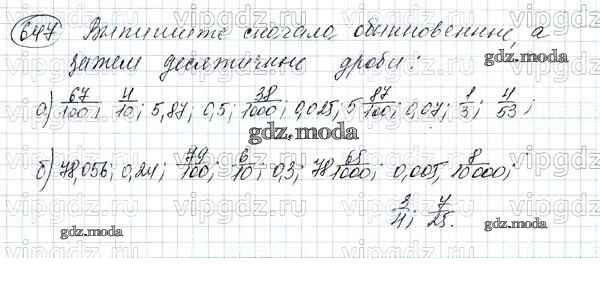 647 Выпишите сначала обыкновенные, а
затем десятичные дроби:
а) 67/100; 4/10; 5,87; 0,5; 38/1000; 0,025; 5 87/100; 0,07; 1/3; 4/53;
б) 78,056; 0,24; 79/100; 6/10; 0,3; 78 65/1000; 0,005; 8/10000;
3/4; 7/25.
gdz.moda
gdz.moda
gdz.moda
gdz.moda
gdz.moda
gdz.moda